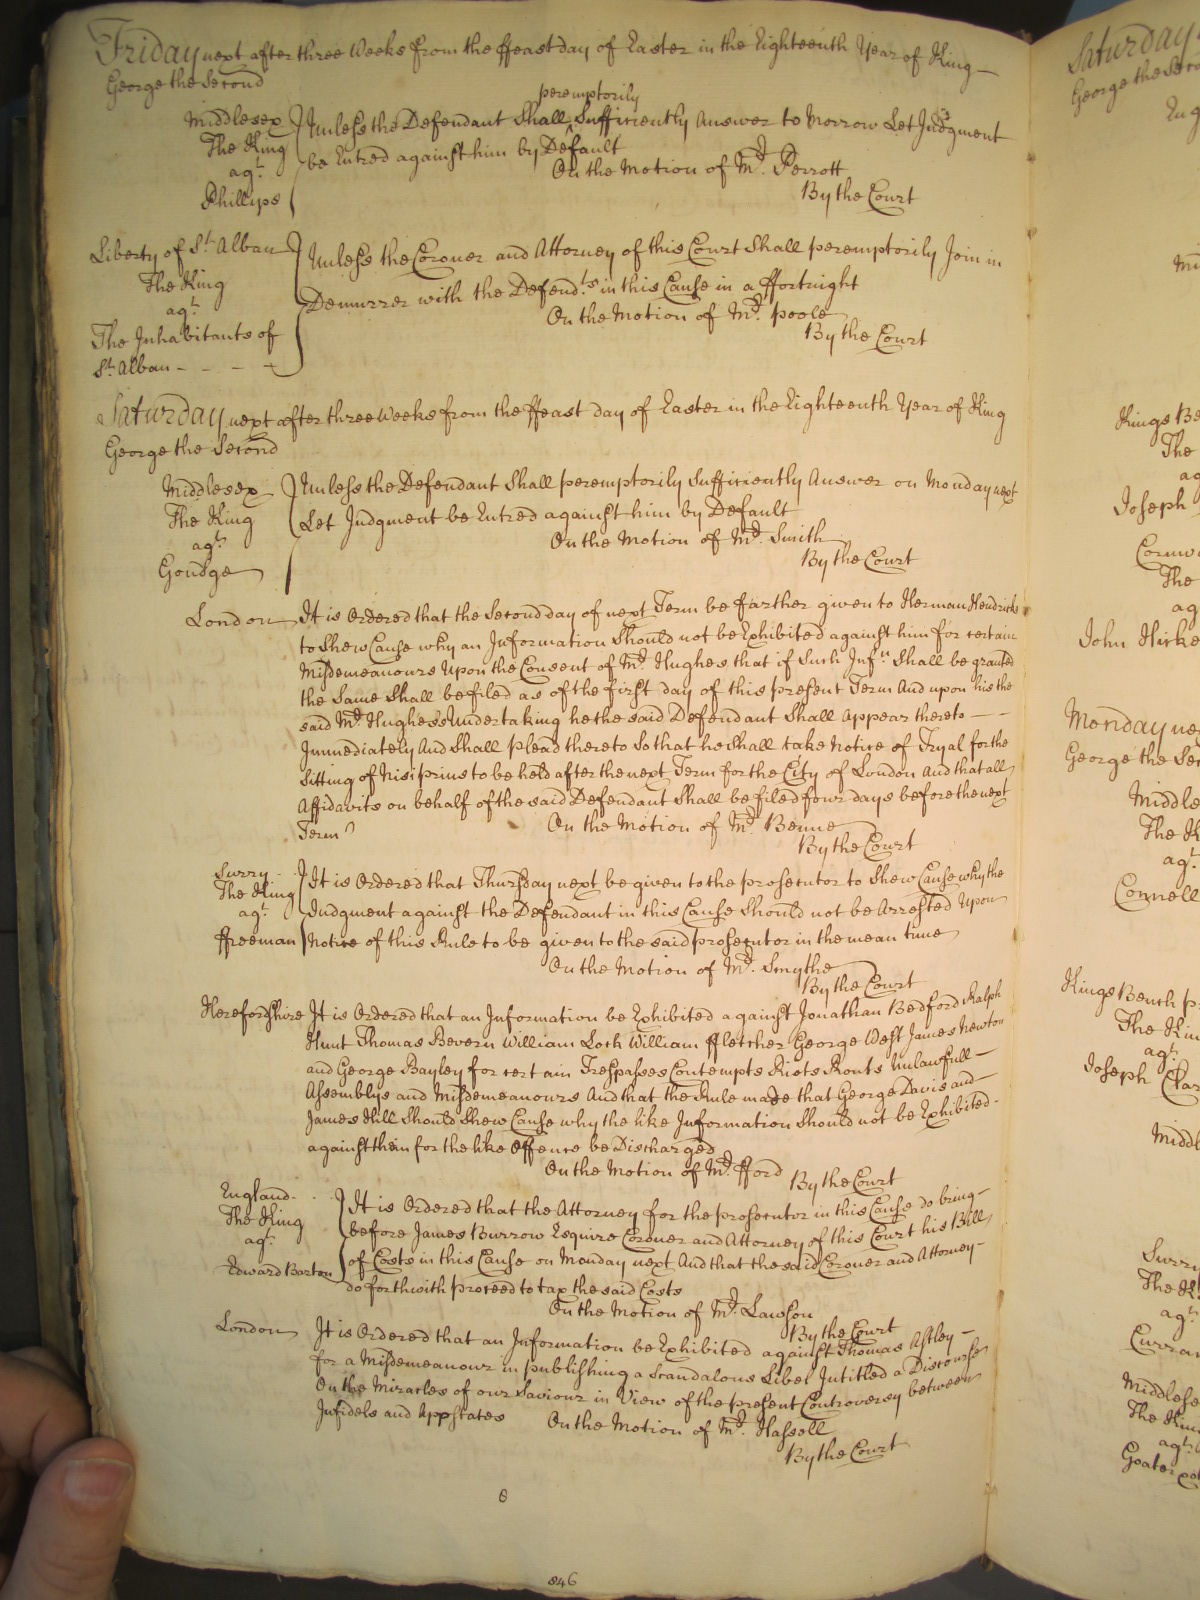 Friday next after three Weeks from the ffeast day of Easter in the Eighteenth Year of King
George the Second
peremptorily
Middlesex Unless the Defendant Shall Sufficiently Answer to Morrow Let Judgment
The King be Entred against him by Default
agt. On the Motion of Mr. Perrott
Phillips By the Court
Liberty of St. Alban Unless the Coroner and Attorney of this Court Shall peremptorily Join in
The King Demurrer with the Defendts. in this Cause in a ffortnight
agt. On the Motion of Mr. poole
The Inhabitants of By the Court
St. Alban
Saturday next after three Weeks from the ffeast day of Easter in the Eighteenth Year of King
George the Second
Middlesex Unless the Defendant Shall peremptorily Sufficiently Answer on Monday next
The King Let Judgment be Entred against him by Default
agt. On the Motion of Mr. Smith
Goudge By the Court
London It is Ordered that the Second day of next Term be farther given to Herman Hendricks
to Shew Cause why an Information Should not be Exhibited against him for certain
Misdemeanours Upon the Consent of Mr. Hughes that if Such Infn. Shall be granted
the Same Shall be filed as of the first day of this present Term And upon his the
said Mr. Hughes's Undertaking he the said Defendant Shall Appear thereto
Immediately And Shall plead thereto So that he Shall take Notice of Tryal for the
Sitting of Nisi prius to be held after the next Term for the City of London And that all
Affidavits on behalf of the said Defendant Shall be filed four days before the next
Term On the Motion of Mr. Benne
By the Court
Surry
The King It is Ordered that Thursday next be given to the prosecutor to Shew Cause why the
agt. Judgment against the Defendant in this Cause Should not be Arrested Upon
ffreeman Notice of this Rule to be given to the said prosecutor in the mean time
On the Motion of Mr. Smythe
By the Court
Herefordshire It is Ordered that an Information be Exhibited against Jonathan Bedford Ralph
Hunt Thomas Bevern William Loch William ffletcher George West James Newton
and George Bayley for certain Trespasses Contempts Riots Routs Unlawfull
Assemblys and Misdemeanours And that the Rule made that George Davis and
James Hill Should Shew Cause why the like Information Should not be Exhibited
against them for the like Offence be Discharged
On the Motion of Mr. fford
By the Court
England It is Ordered that the Attorney for the prosecutor in this Cause do bring
The King before James Burrow Esquire Coroner and Attorney of this Court his Bill
agt. of Costs in this Cause on Monday next And that the said Coroner and Attorney
Edward Barton do forthwith proceed to tax the said Costs
On the Motion of Mr. Lawson
By the Court
London It is Ordered that an Information be Exhibited against Thomas Astley
for a Misdemeanour in publishing a Scandalous Libel Intitled a Discourse
On the Miracles of our Saviour in View of the present Controversy between
Infidels and Appstates On the Motion of Mr. Hassell
By the Court
846
Saturday
George the Seco
Kings Be
The
ag
Joseph
Cornw
The
ag
John Hicke
Monday ne
George the Sec
Middle
The K
agt.
Connell
Kings Bench p
The Kin
agt.
Joseph Clar
Middl
Surry
The K
agt.
Curran
Middlese
The Kin
agt.
Goater